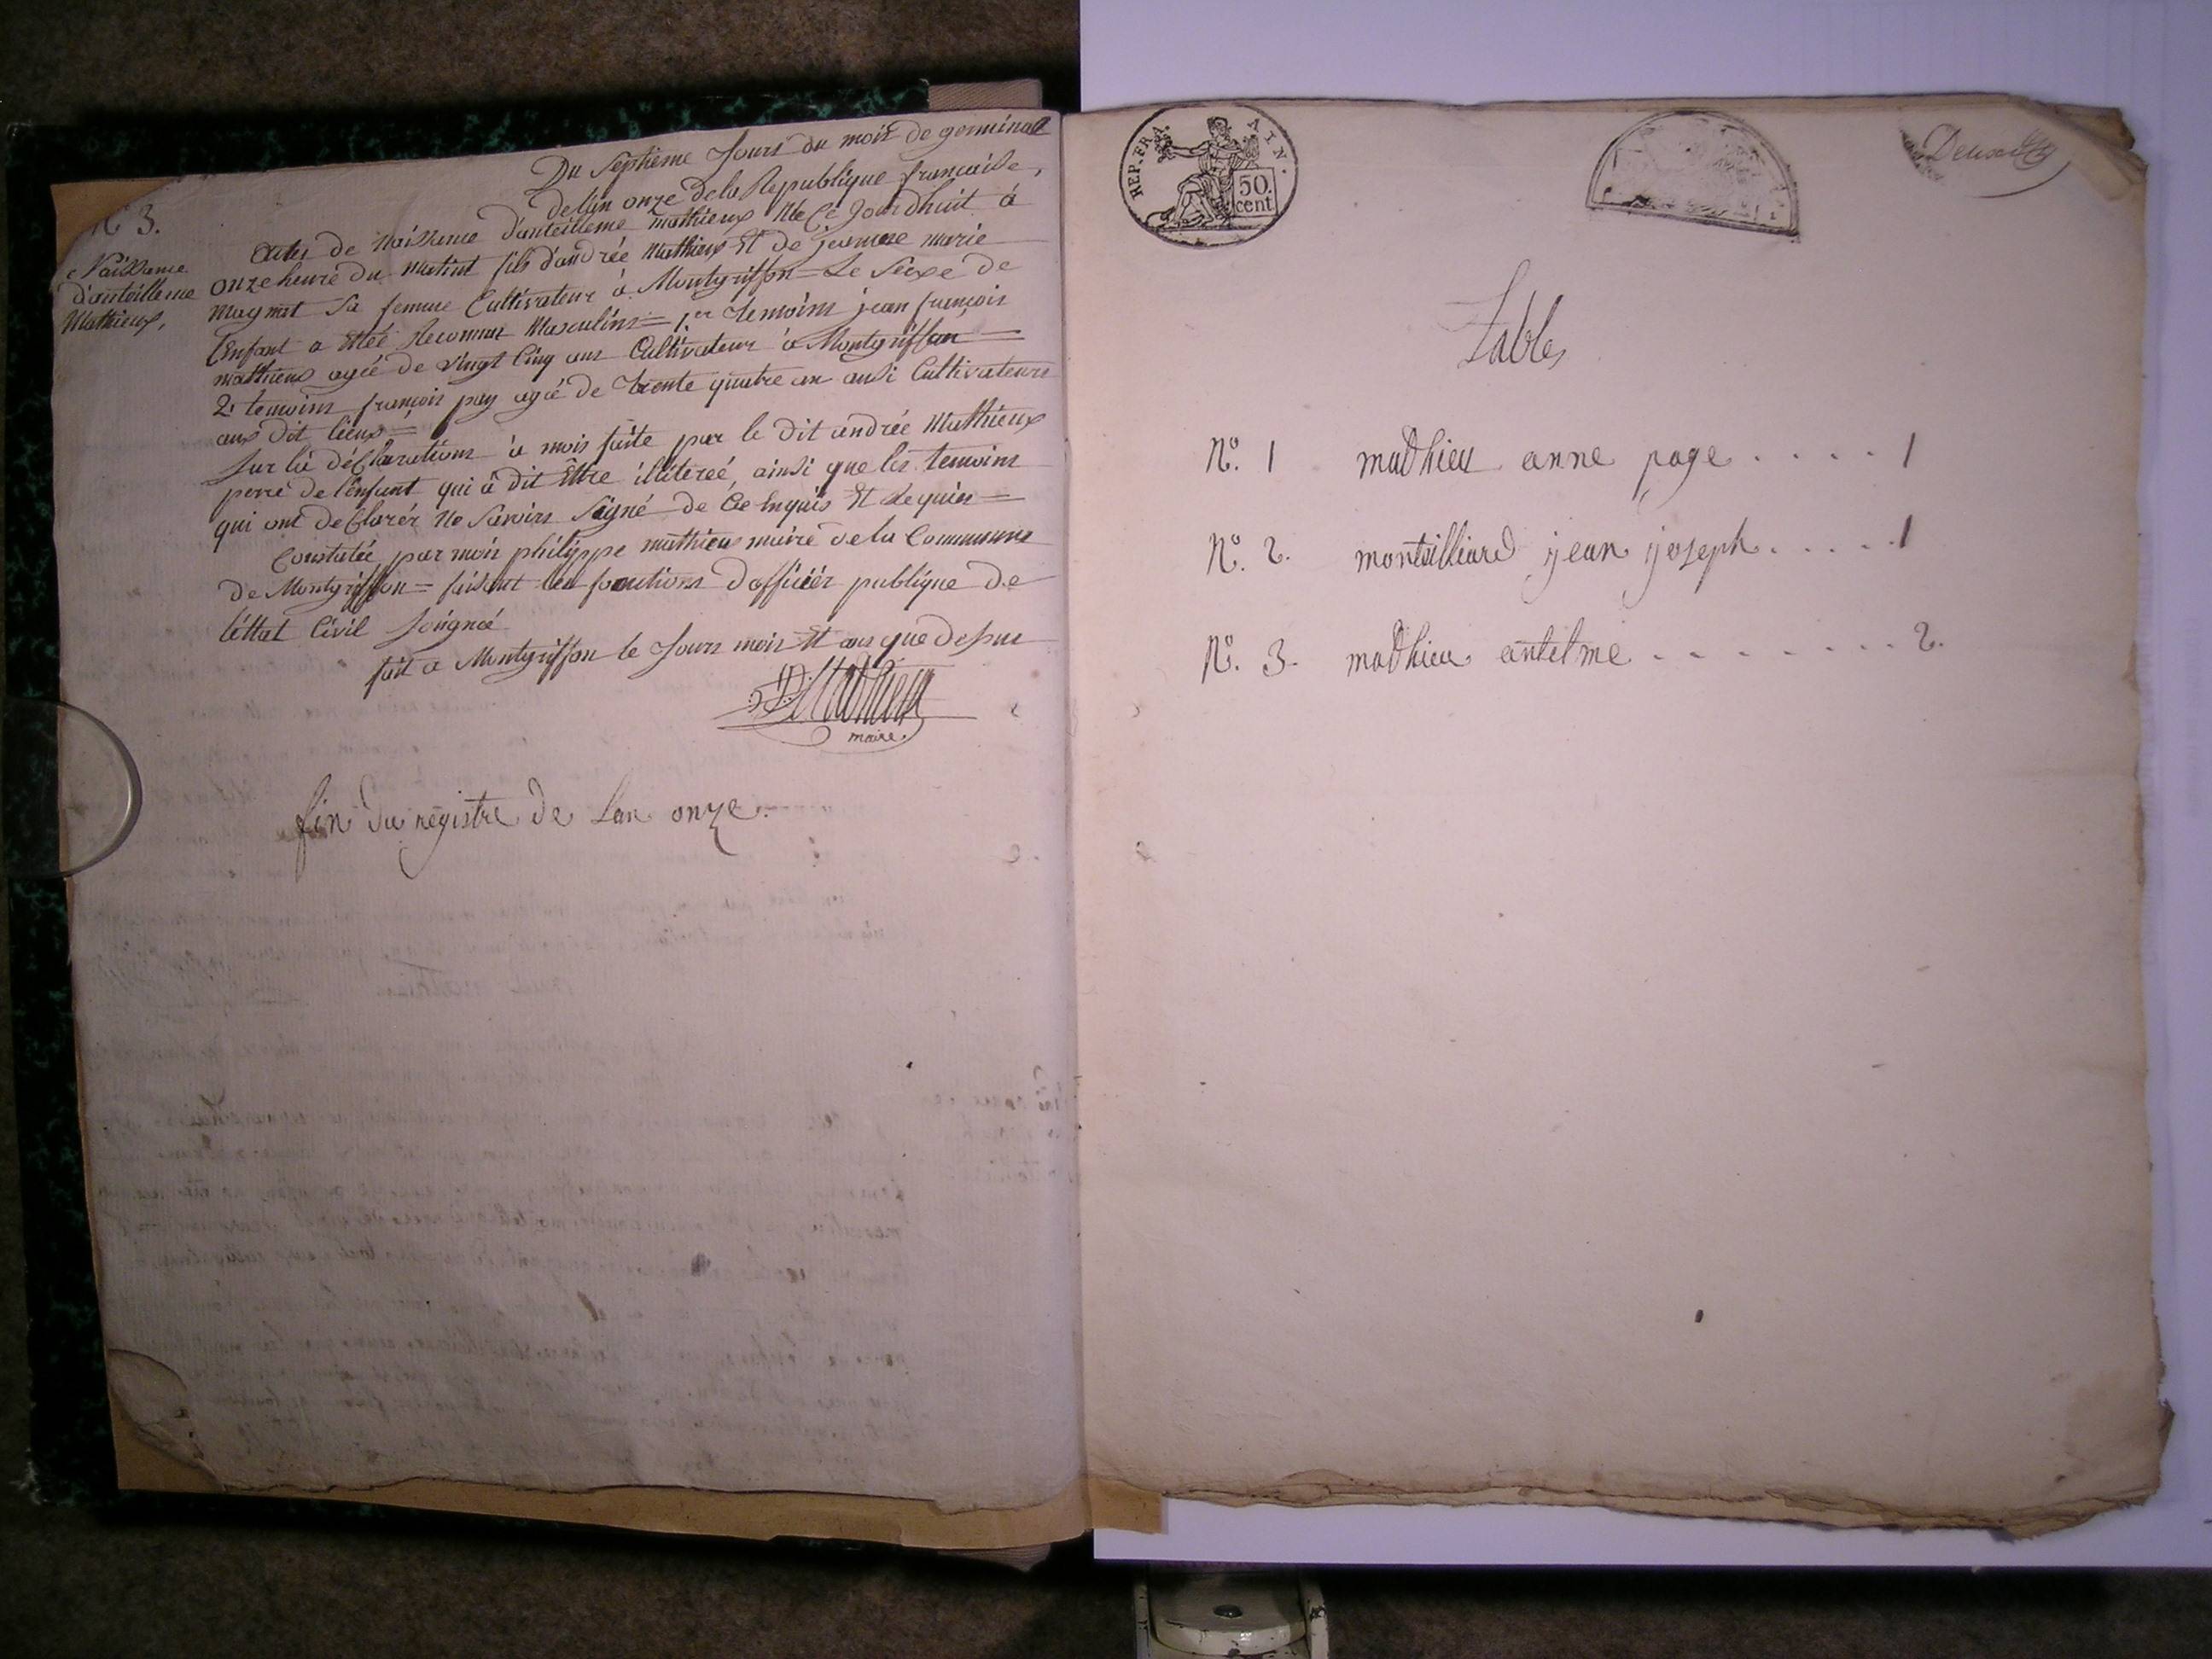 N° 3.
Naissance
d'anteilleme
Mathieux,
Du Septieme Jours du mois de germinal
de l'an onze de la Republique francaise,
Actes de naissance d'anteilleme mathieux Né Ce Jourdhuit à
onze heure du matint fils d'andrée Mathieux Et de jeanne marie
Magnit Sa femme Cultivateur à Montgriffon = Le Sexe de
L'enfant a Etéé Reconnu Masculins = 1er temoins jean françois
mathieux agéé de vingt Cinq ans Cultivateur à Montgriffon =
2e temoins françois pey agéé de trente quatre an ausi Cultivateurs
aux dit lieux =
Sur la déClarations à mois faite par le dit andrée Mathieux
perre de l'enfant qui à dit Ettre illitereé, ainsi que les temoins
qui ont deClarér Ne Savoirs Signé de Ce Enquis Et Requier =
Constatéé par mois philippe mathieux maire de la Commune
de Montgriffon = faisant les fonctions d'officiér publique de
l'éttat Civil Soignéé
fait a Montgriffon le Jours mois Et ans que desus
P. Mathieu
maire.
fin du registre de Lan onze.
REP. FRA. AIN.
50.
cent
Tables
N°. 1 mathieu anne page . . . . 1
N°. 2. montillard jean joseph . . . . . 1
N°. 3. mathieu antelme . . . . . . . 2.